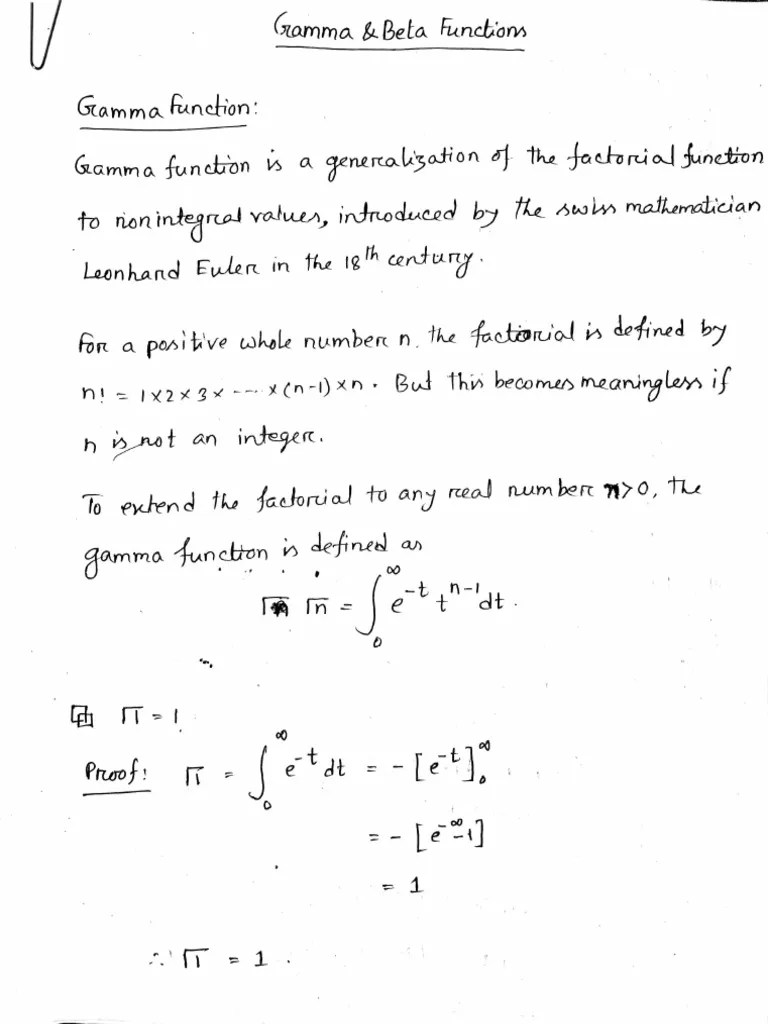 Gamma & Beta Functions
Gamma Function:
Gamma function is a generalization of the factorial function
to nonintegral values, introduced by the swiss mathematician
Leonhard Euler in the 18th century.
For a positive whole number n. the factorial is defined by
n! = 1×2×3×----×(n-1)×n. But this becomes meaningless if
n is not an integer.
To extend the factorial to any real number n>0, the
gamma function is defined as
Γn = ∫₀^∞ e^-t t^n-1 dt.
Γ1 = 1
Proof: Γ1 = ∫₀^∞ e^-t dt = -[e^-t]₀^∞
= -[e^-∞ -1]
= 1
∴ Γ1 = 1.